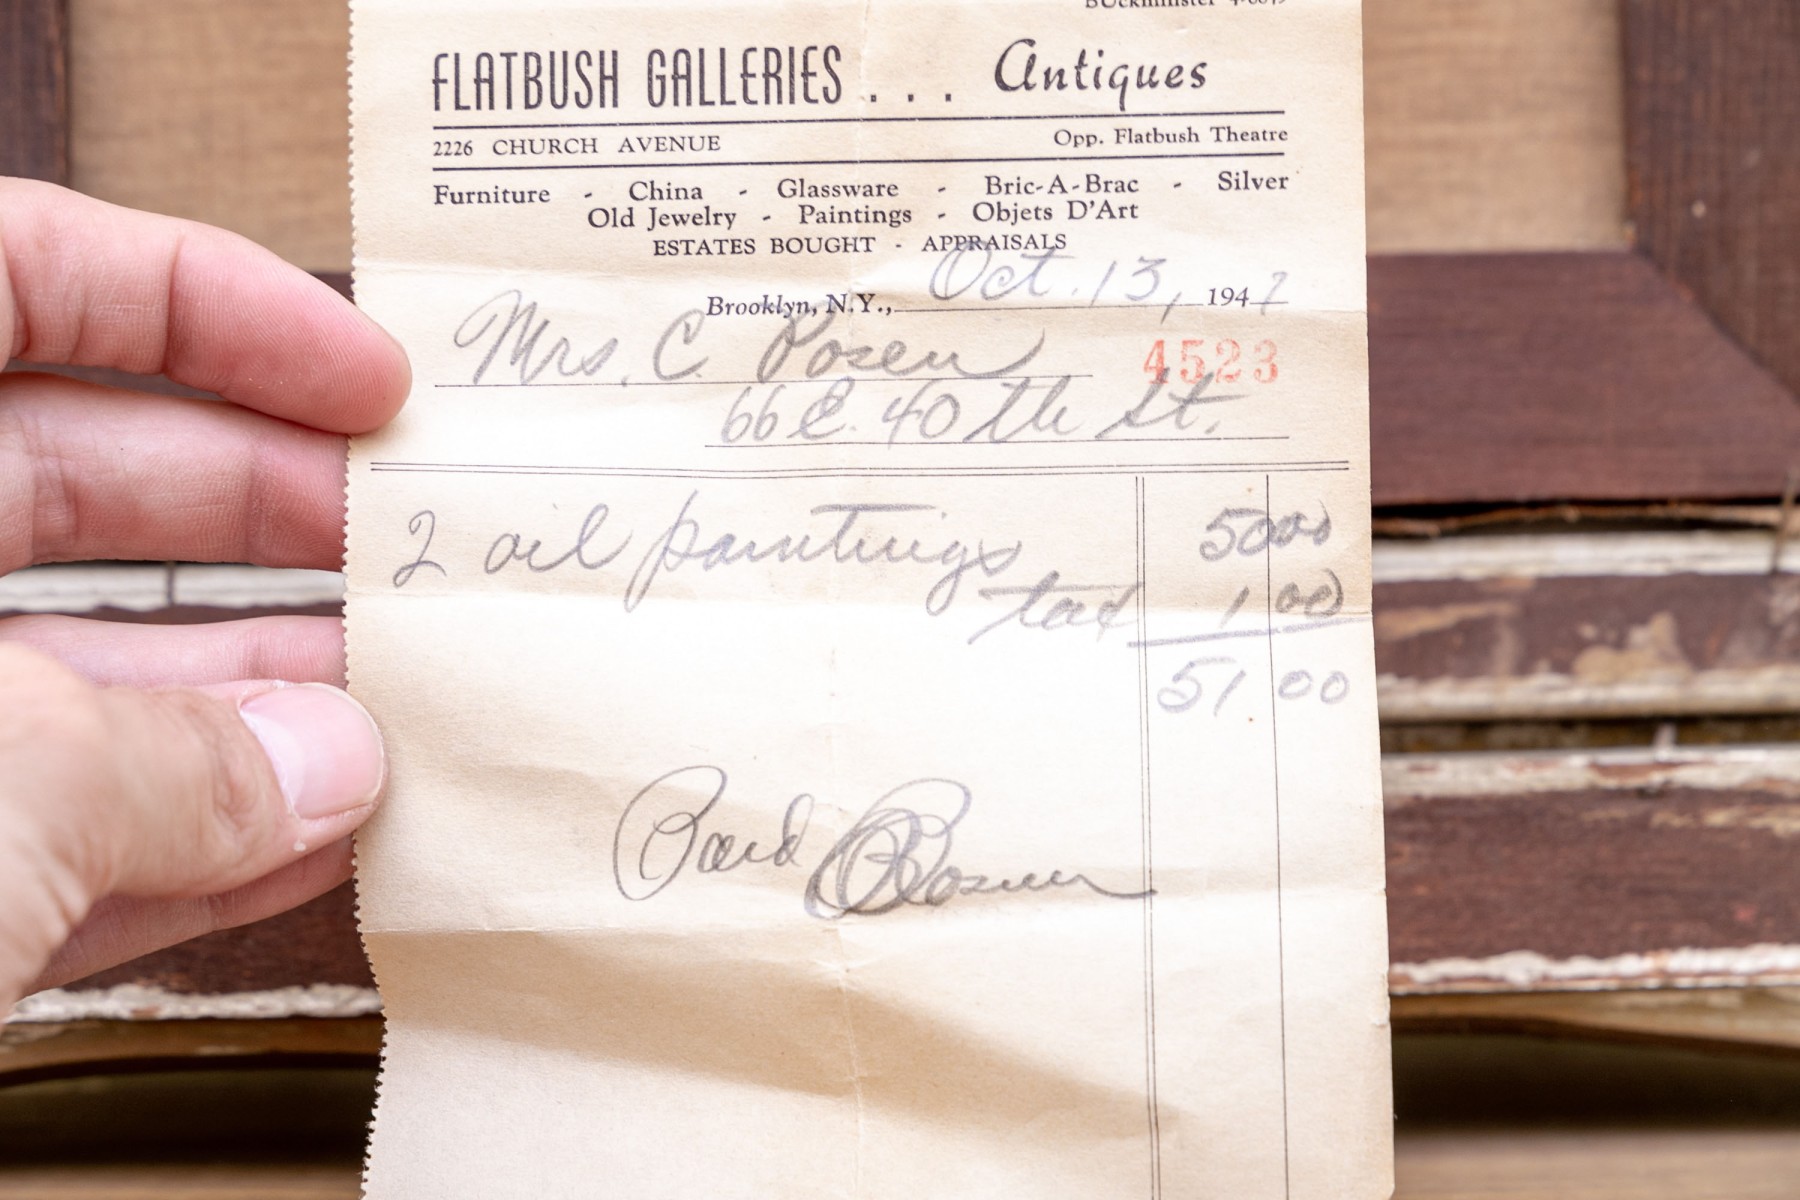 BUckminster
FLATBUSH GALLERIES . . . Antiques
2226 CHURCH AVENUE Opp. Flatbush Theatre
Furniture - China - Glassware - Bric-A-Brac - Silver
Old Jewelry - Paintings - Objets D'Art
ESTATES BOUGHT - APPRAISALS
Brooklyn, N.Y., Oct. 13, 1947
Mrs. C. Posen 4523
66 E. 40th St.
2 oil paintings 50 00
tax 1 00
51 00
Paid